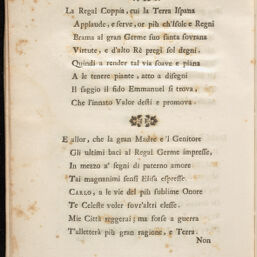 La Regal Coppia, cui la Terra Ispana
Applaude, e serve, or più ch'Isole e Regni
Brama al gran Germe suo santa sovrana
Virtute, e d'alto Rè pregi sol degni.
Quindi a render tal via soave e piana
A le tenere piante, atto a disegni
Il saggio il fido Emmanuel si trova,
Che l'innato Valor desti e promova.
E allor, che la gran Madre e'l Genitore
Gli ultimi baci al Regal Germe impresse,
In mezzo a' segni di paterno amore
Tai magnanimi sensi Elisa espresse.
CARLO, a le vie del più sublime Onore
Te Celeste voler sovr'altri elesse.
Mie Città reggerai; ma forse a guerra
T'alletterà più gran ragione, e Terra.
Non